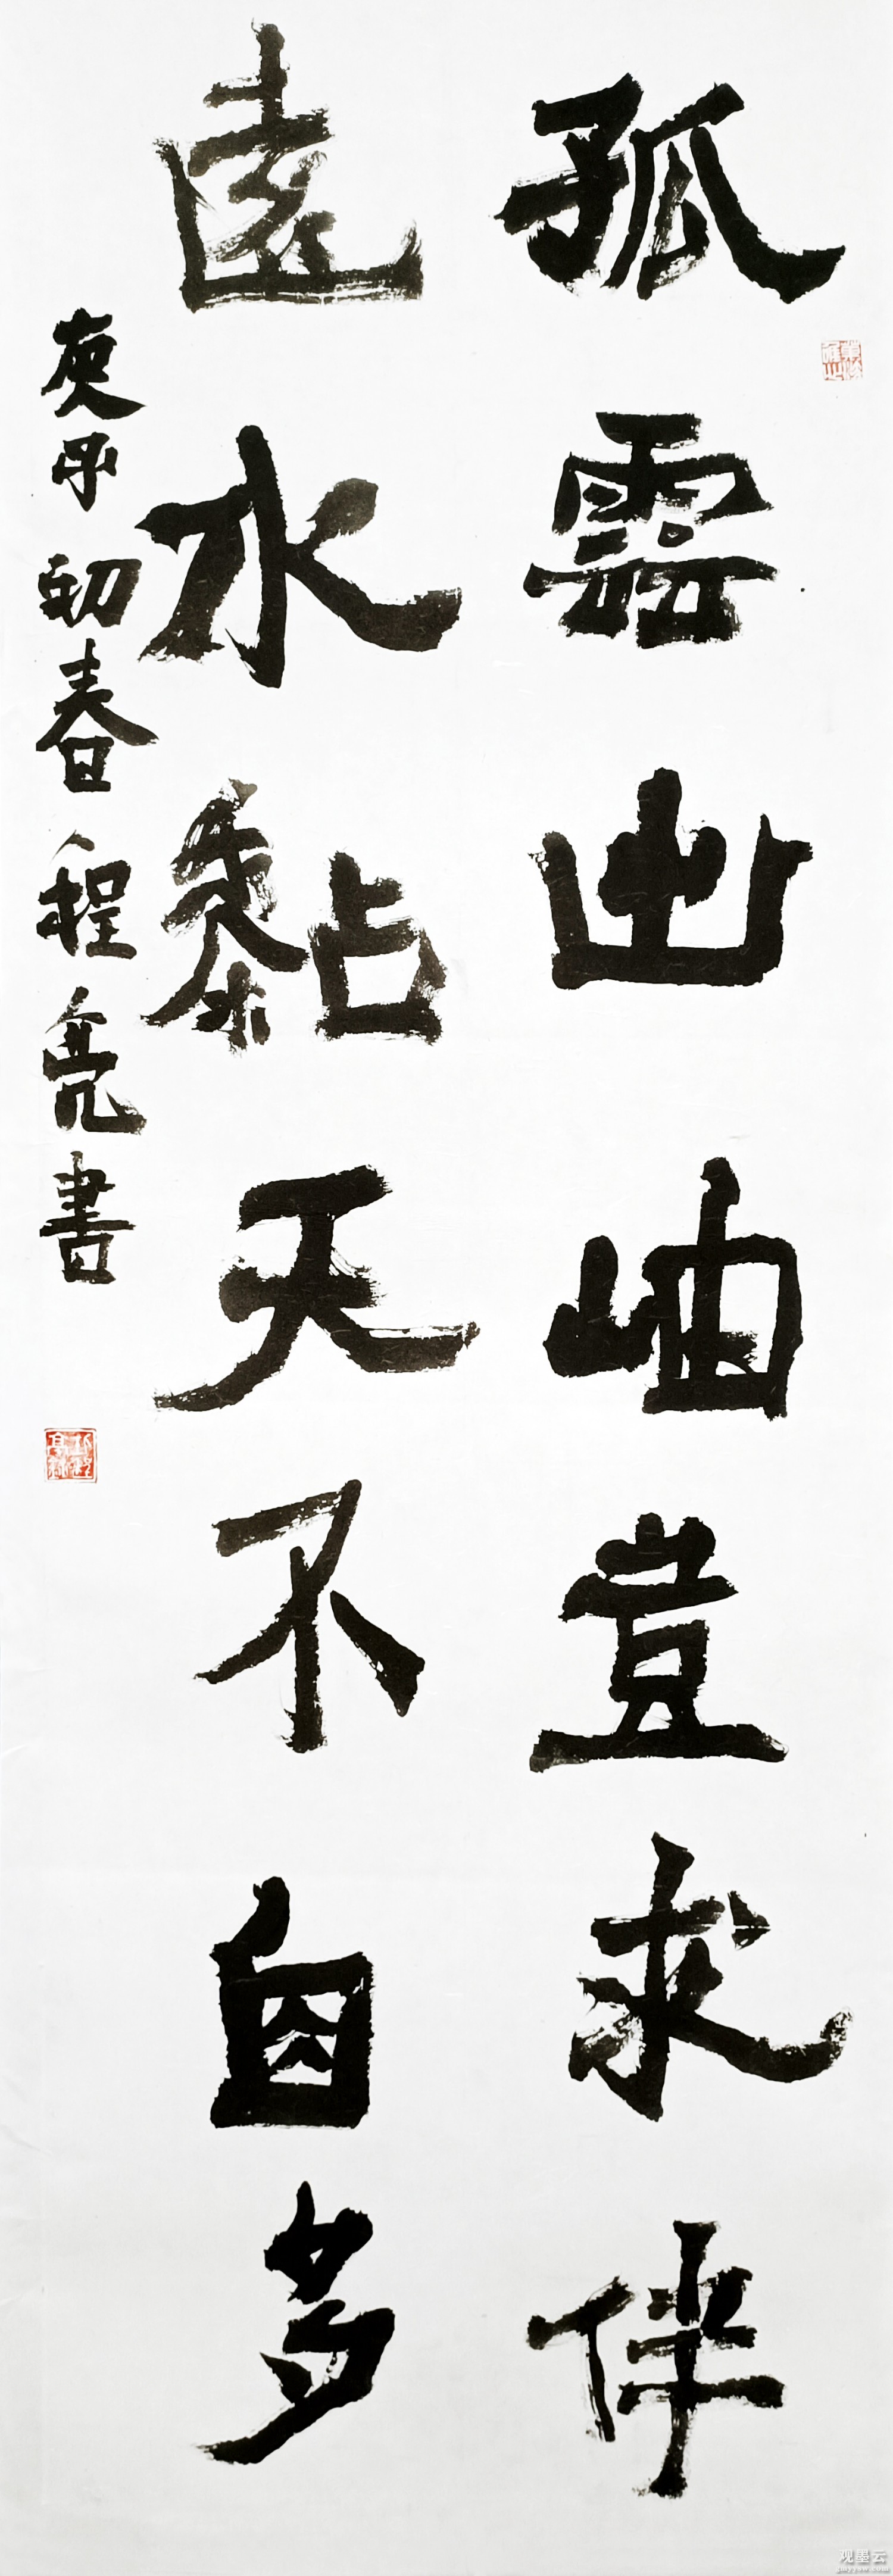 孤雲出岫豈求伴
遠水黏天不自多
庚子初春程亮書
观墨云